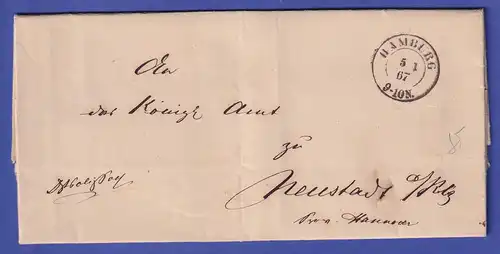 HAMBURG
5 1
67
9-10N.
An
das Königl Amt
zu
Neustadt a/Rbg
Prov. Hannover